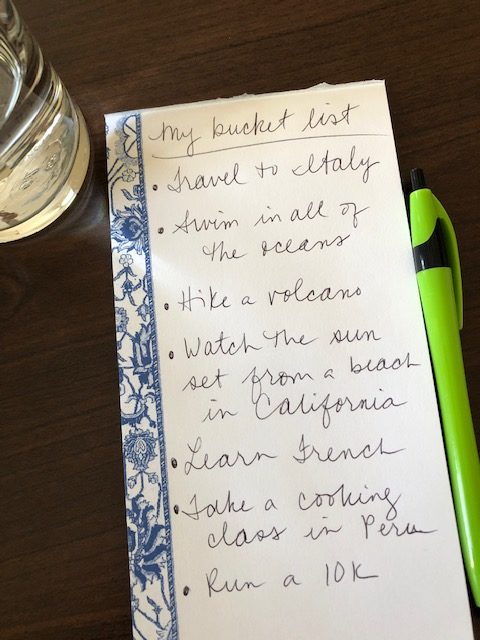 My bucket list
• Travel to Italy
• Swim in all of
the oceans
• Hike a volcano
• Watch the sun
set from a beach
in California
• Learn French
• Take a cooking
class in Peru
• Run a 10K